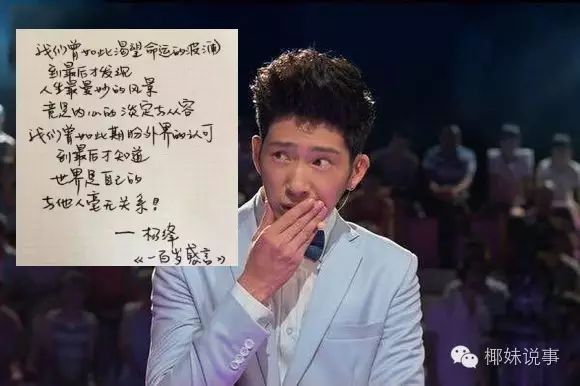 我们曾如此渴望命运的波澜
到最后才发现
人生最曼妙的风景
竟是内心的淡定与从容
我们曾如此期盼外界的认可
到最后才知道
世界是自己的
与他人毫无关系!
— 杨绛
《一百岁感言》
椰妹说事